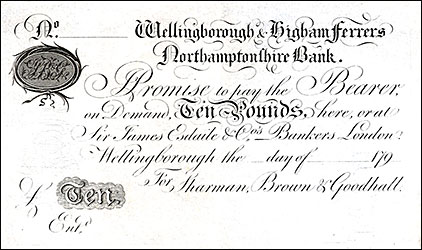 No. Wellingborough & Higham Ferrers
Northamptonshire Bank.
I Promise to pay the Bearer
on Demand, Ten Pounds, here, or at
Sir James Esdaile & Co's Bankers London.
Wellingborough the day of 179
For Sharman, Brown & Goodhall.
£ Ten.
Entd.